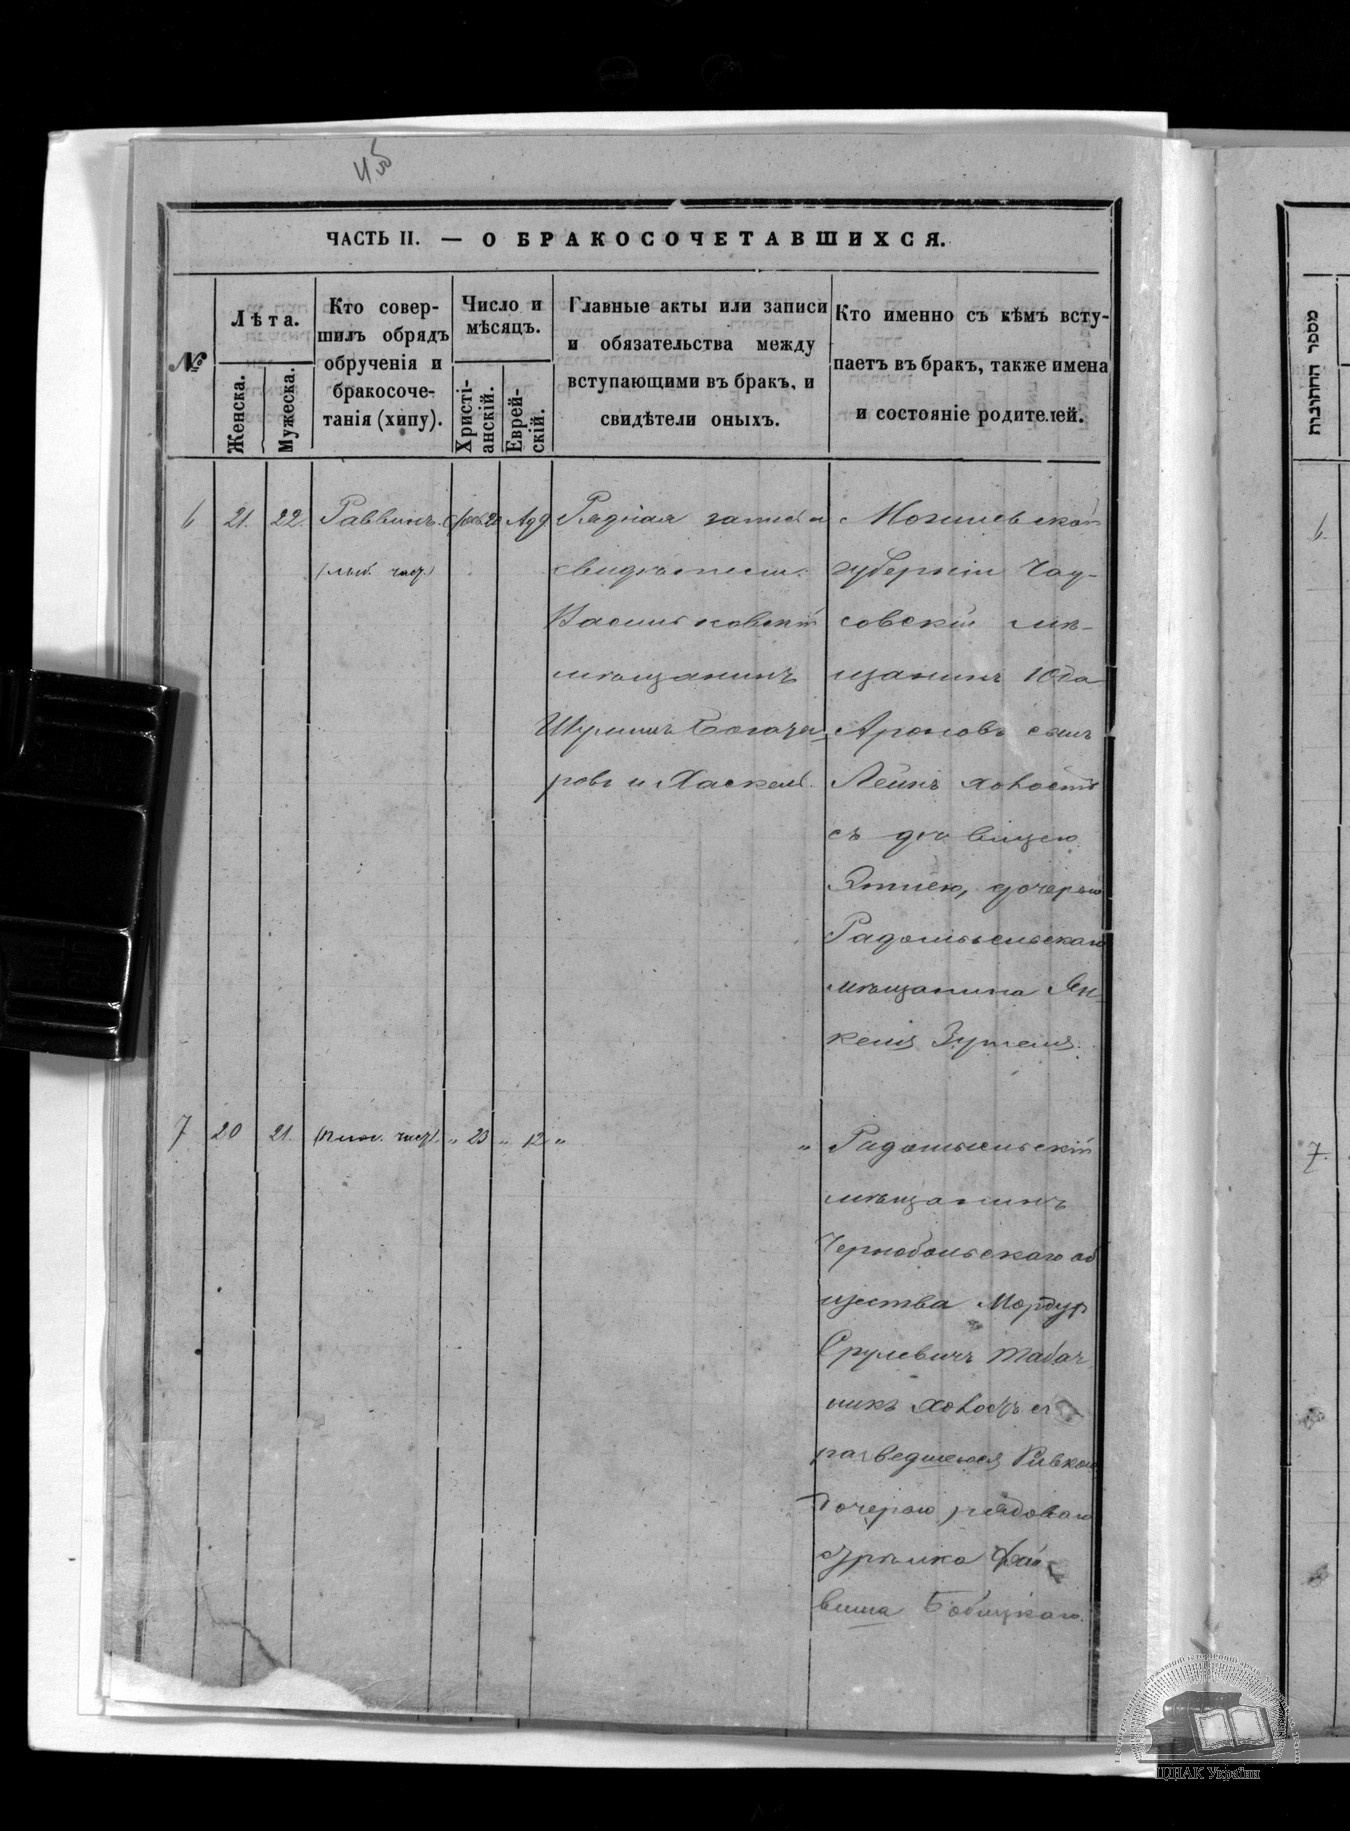 ЧАСТЬ II. — О БРАКОСОЧЕТАВШИХСЯ.
№
Лѣта.
Женска.
Мужеска.
Кто совер-
шилъ обрядъ
обрученія и
бракосоче-
танія (хипу).
Число и
мѣсяцъ.
Христі-
анскій.
Еврей-
скій.
Главные акты или записи
и обязательства между
вступающими въ бракъ, и
свидѣтели оныхъ.
Кто именно съ кѣмъ всту-
паетъ въ бракъ, также имена
и состояніе родителей.
6
21.
22.
Раввинъ.
Рядная запись и
свидѣтели:
Васильковскій
мѣщанинъ
ровъ и Хаскель.
Могилевской
губерніи Чау-
совскій мѣ-
щанинъ Юда
Ароновъ сынъ
Лейнъ холостъ
съ дѣвицею
дочерью
Радомысльскаго
мѣщанина Ян-
келя
7
20
21.
" 23
" 12
"
"
Радомысльскій
мѣщанинъ
Чернобыльскаго об
щества Мордух
Срулевичъ Табач
никъ холостъ съ
разведшеюся Ривкою
дочерью рядового
Фай
виша Бобицкаго.
מספר החתונות
6.
7.
ЦДІАК України